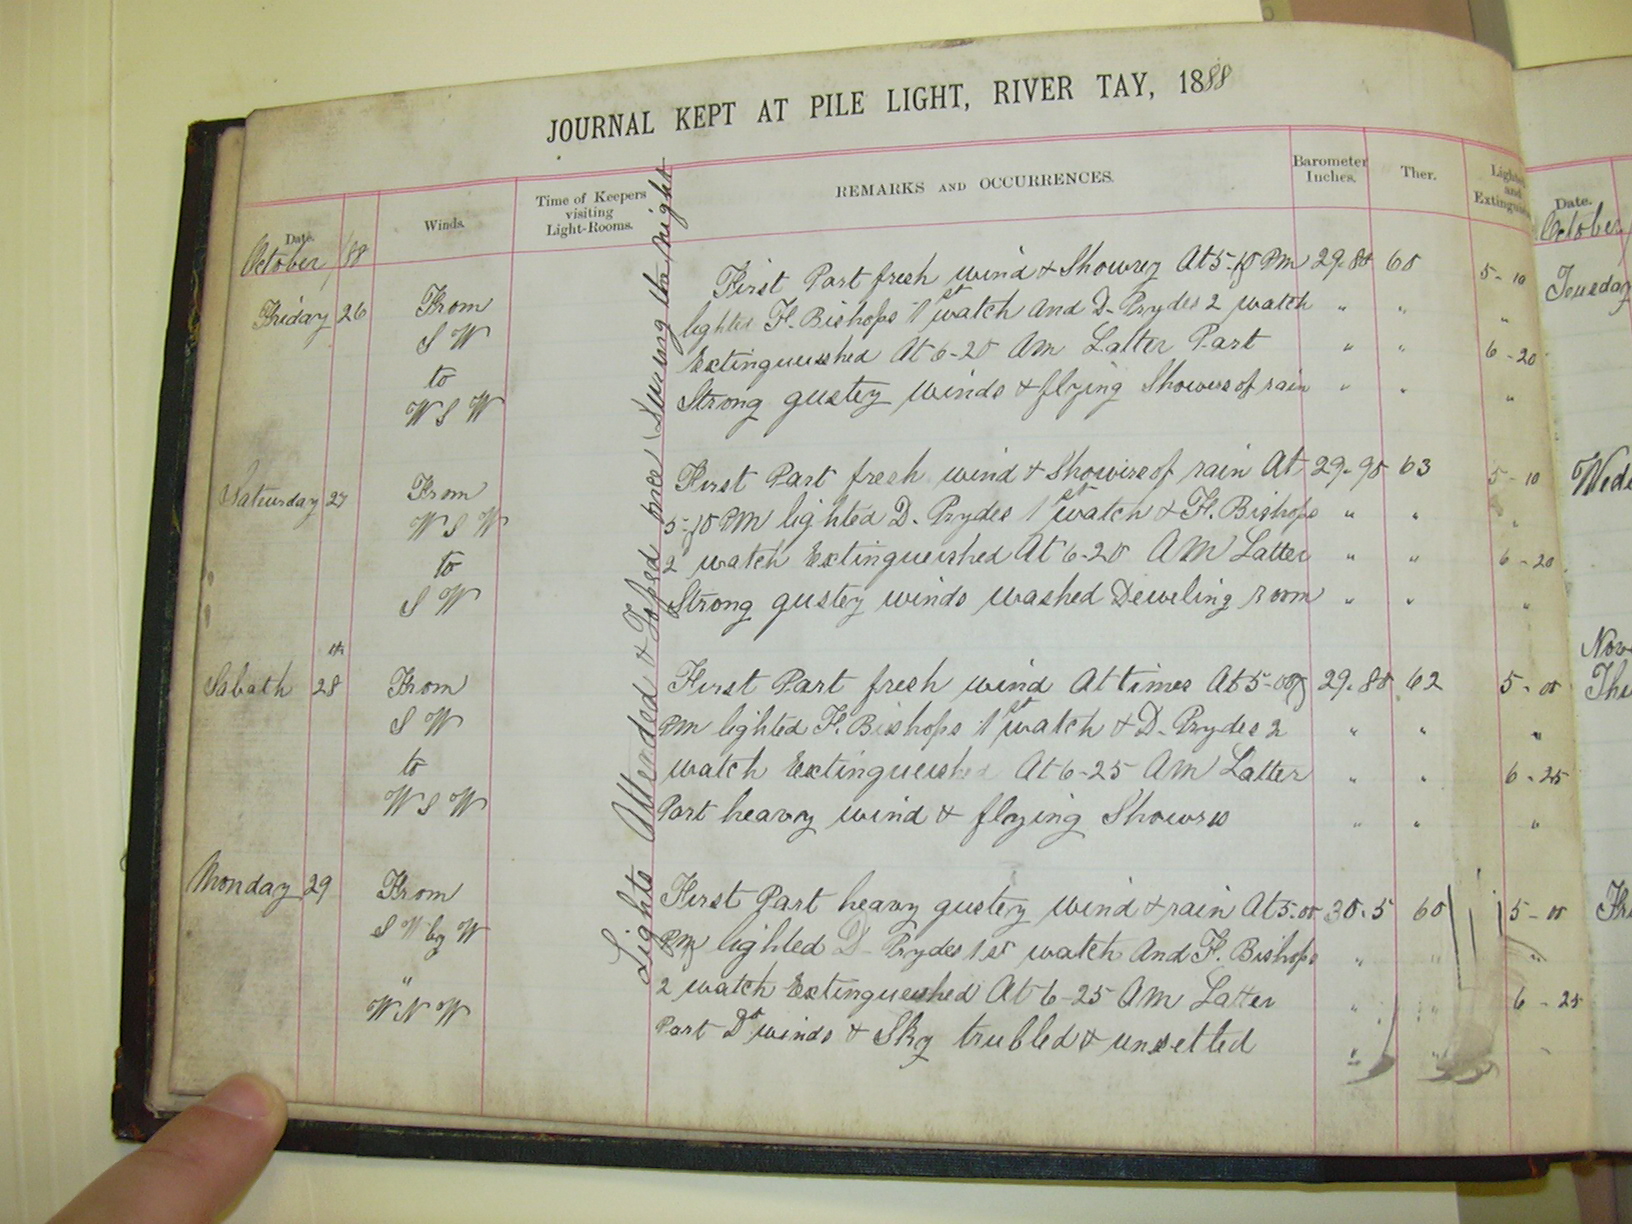 JOURNAL KEPT AT PILE LIGHT, RIVER TAY, 1888
Date. Winds. Time of Keepers visiting Light-Rooms. REMARKS AND OCCURRENCES. Barometer Inches. Ther. Lighted and Extinguished
October /88
Friday 26 From First Part fresh wind & Showrey At 5-10 PM 29.80 60 5-10
S W lighted H. Bishops 1st watch and D. Prydes 2 watch " " "
to Extinguished At 6-20 AM Latter Part " " 6-20
W S W Strong gustey winds & flying Showers of rain " " "
Saturday 27 From First Part fresh wind & Showirs of rain At 29.90 63 5-10
W S W 5-10 PM lighted D. Prydes 1st watch & H. Bishops " " "
to 2 watch Extinguished At 6-20 AM Latter " " 6-20
S W Strong gustey winds washed Deweling room " " "
Sabath 28th From First Part fresh wind At times At 5-00 29.80 62 5-00
S W PM lighted H. Bishops 1st watch & D. Prydes 2 " " "
to watch Extinguished At 6-25 AM Latter " " 6-25
W S W Part heavy wind & flying Showrs " " "
Monday 29 From First Part heavy gustey wind & rain At 5.00 30.5 60 5-00
S W by W PM lighted D. Prydes 1st watch and H. Bishops " " "
" 2 watch Extinguished At 6-25 AM Latter " " 6-25
W N W Part Do winds & Sky trubled & unsetled " " "
Lights Attended & Toped once During the night
Date.
October
Tuesday
Wed
Nov